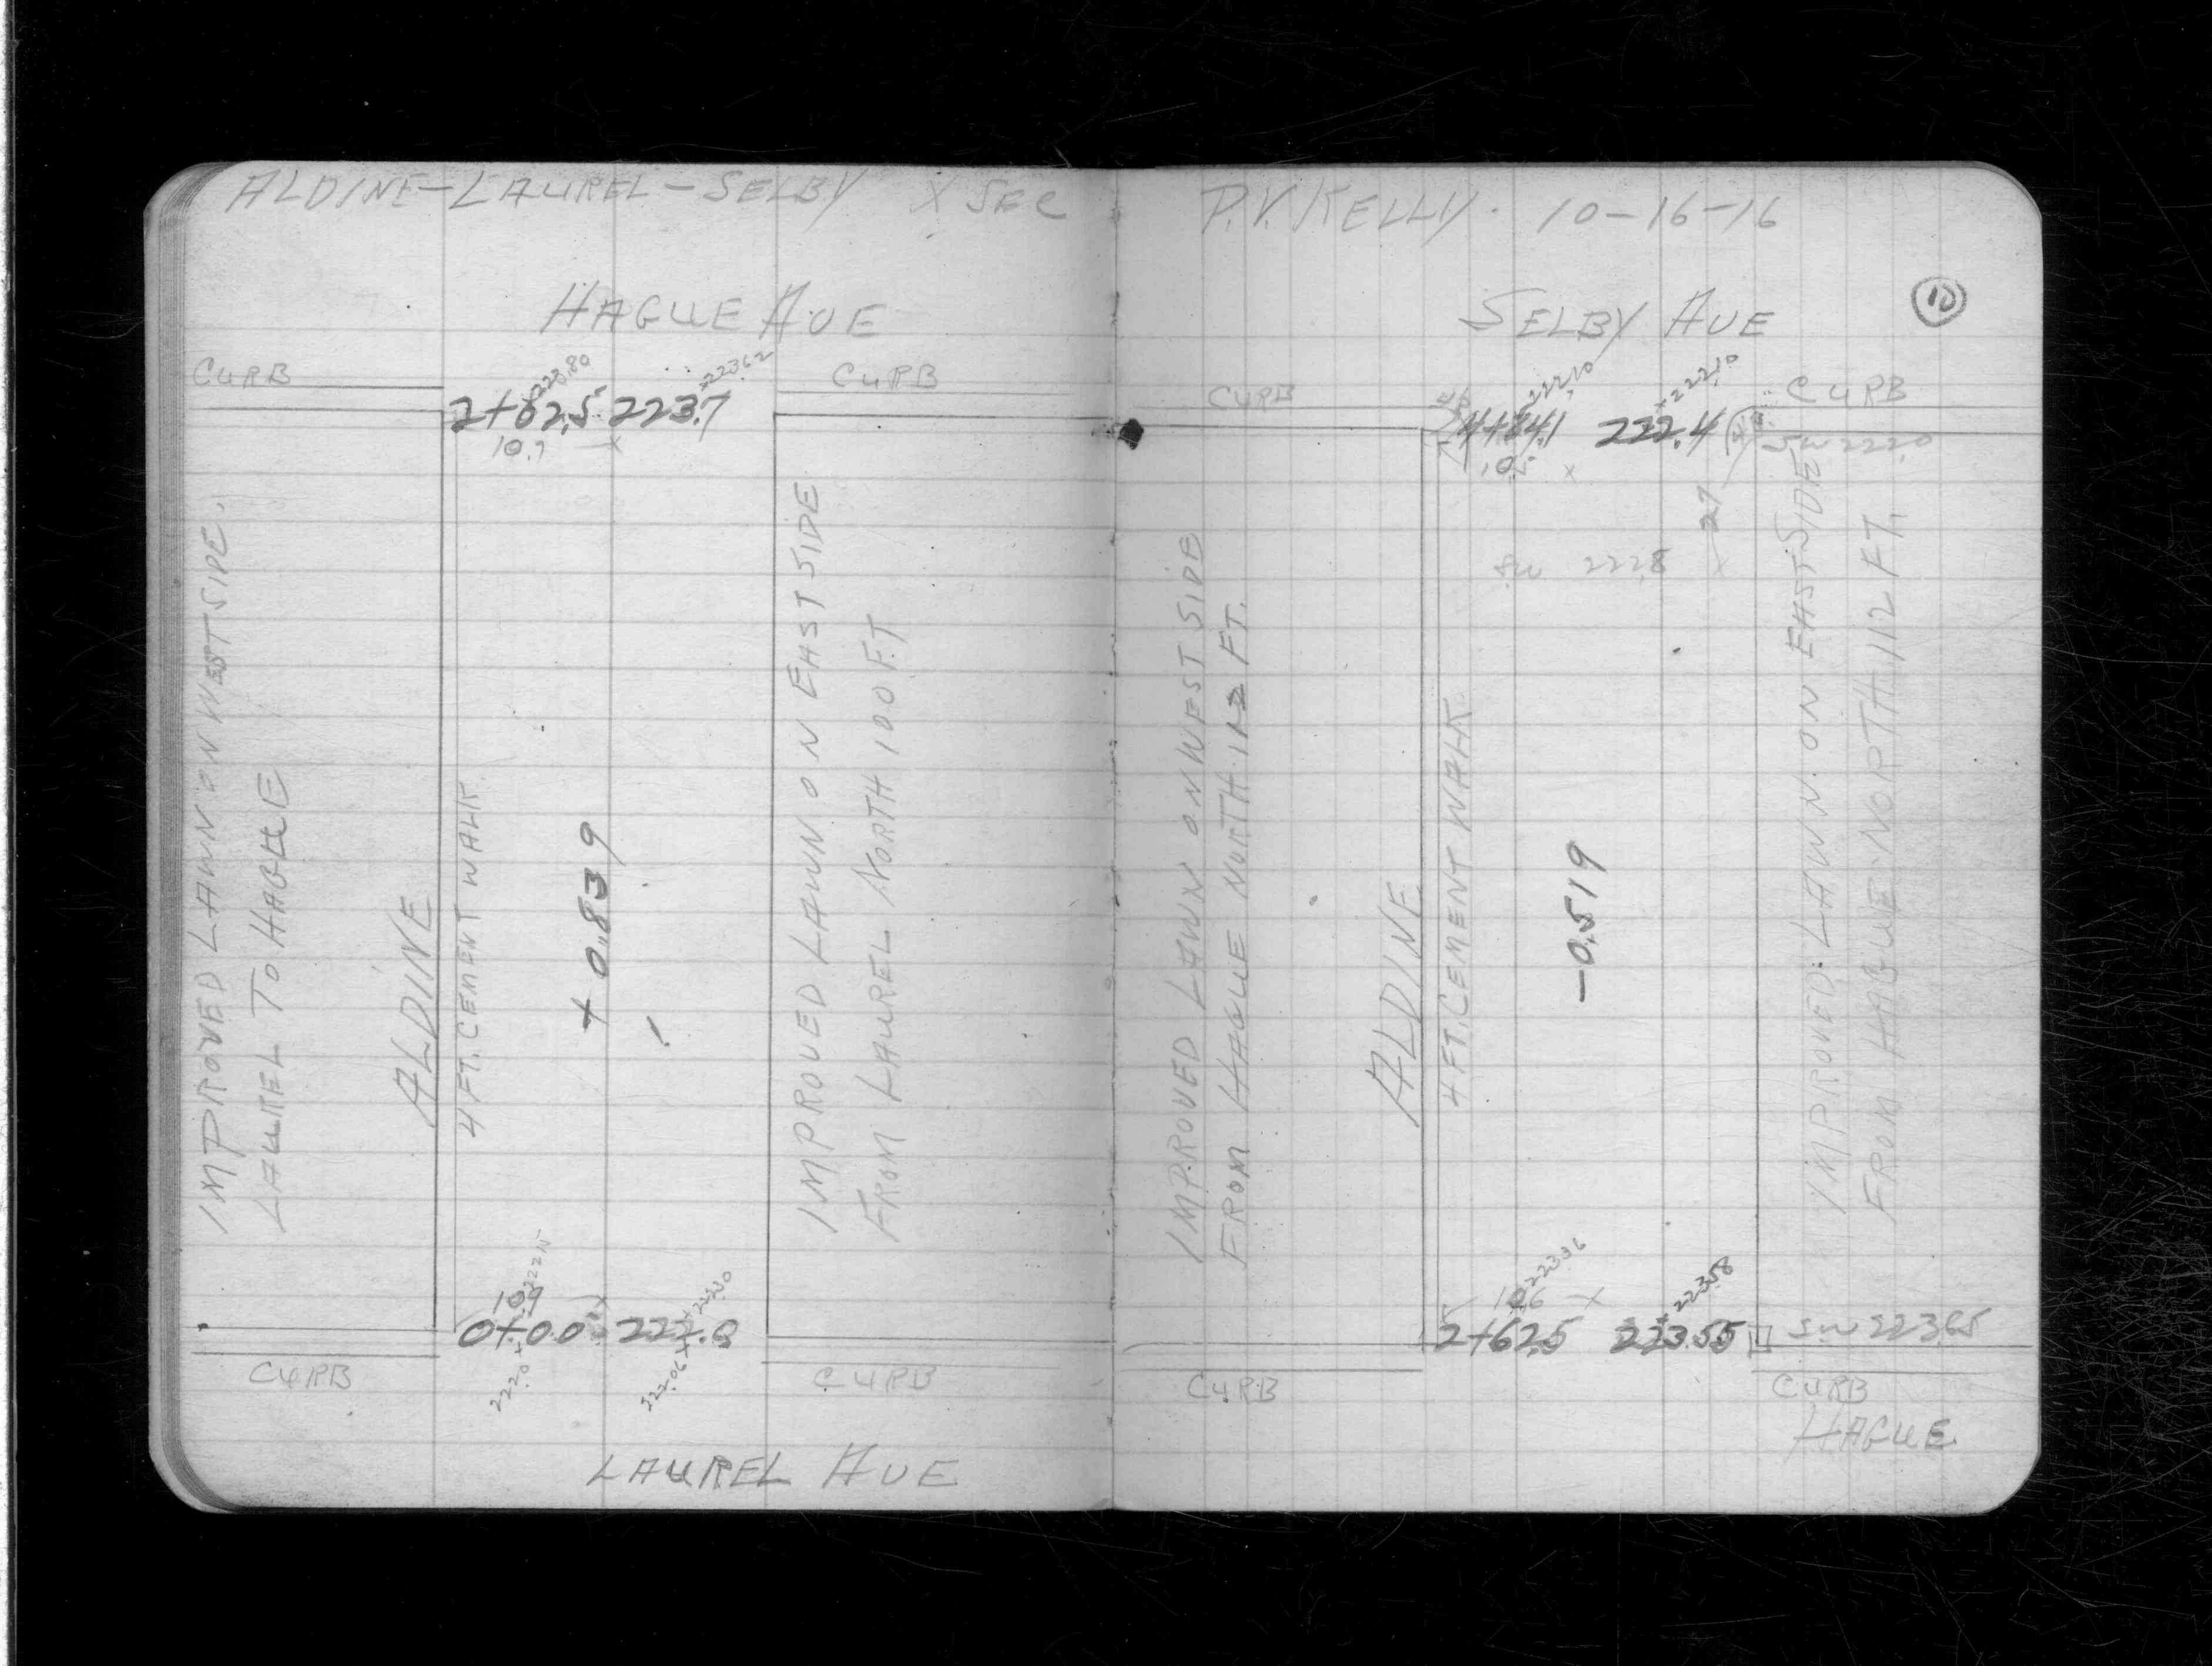 ALDINE-LAUREL-SELBY X SEC
HAGUE AVE
CURB
CURB
223.80
223.62
2+62.5 223.7
10.7 x
IMPROVED LAWN ON WEST SIDE.
LAUREL TO HAGUE
ALDINE
4 FT. CEMENT WALK
+ 0.839
IMPROVED LAWN ON EAST SIDE
FROM LAUREL NORTH 100 FT
10.9
222.15
222.0
222.06
CURB
CURB
LAUREL AVE
P.V. KELLY. 10-16-16
10
SELBY AVE
CURB
CURB
222.10
222.10
4+84.1 222.4
SW 222.0
10.5 x
27
SW 222.8 x
IMPROVED LAWN ON WEST SIDE
FROM HAGUE NORTH 112 FT.
ALDINE
4 FT. CEMENT WALK
-0.519
IMPROVED LAWN ON EAST SIDE
FROM HAGUE NORTH 112 FT.
10.6 x
223.36
223.58
2+62.5 223.55
SW 223.65
CURB
CURB
HAGUE